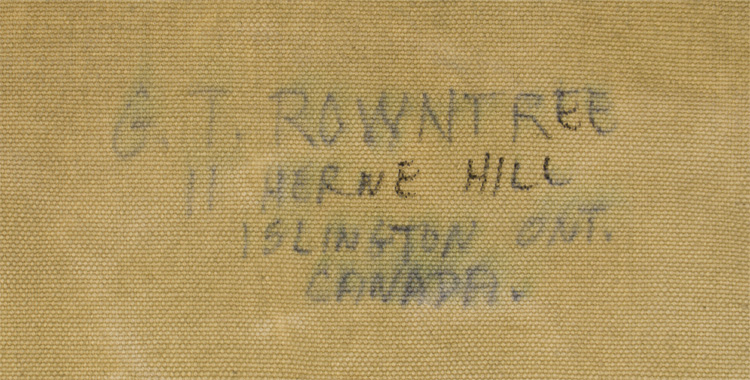 G. T. ROWNTREE
11 HERNE HILL
ISLINGTON ONT.
CANADA.